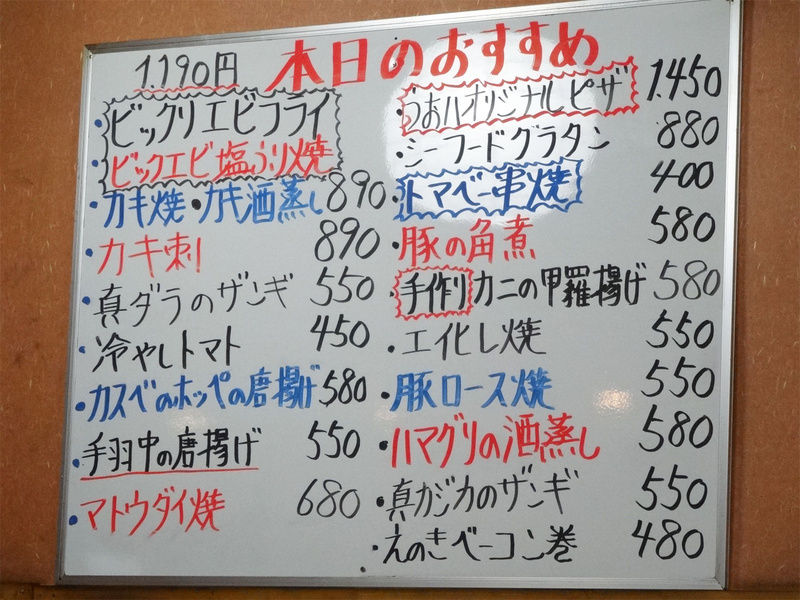 本日のおすすめ
1.190円
・ビックリエビフライ
・ビックエビ塩ふり焼
・カキ焼・カキ酒蒸し 890
・カキ刺 890
・真ダラのザンギ 550
・冷やしトマト 450
・カスベのホッペの唐揚げ 580
・手羽中の唐揚げ 550
・マトウダイ焼 680
・うおハオリジナルピザ 1.450
・シーフードグラタン 880
・トマベー串焼 400
・豚の角煮 580
・手作りカニの甲羅揚げ 580
・エイヒレ焼 550
・豚ロース焼 550
・ハマグリの酒蒸し 580
・真カジカのザンギ 550
・えのきベーコン巻 480